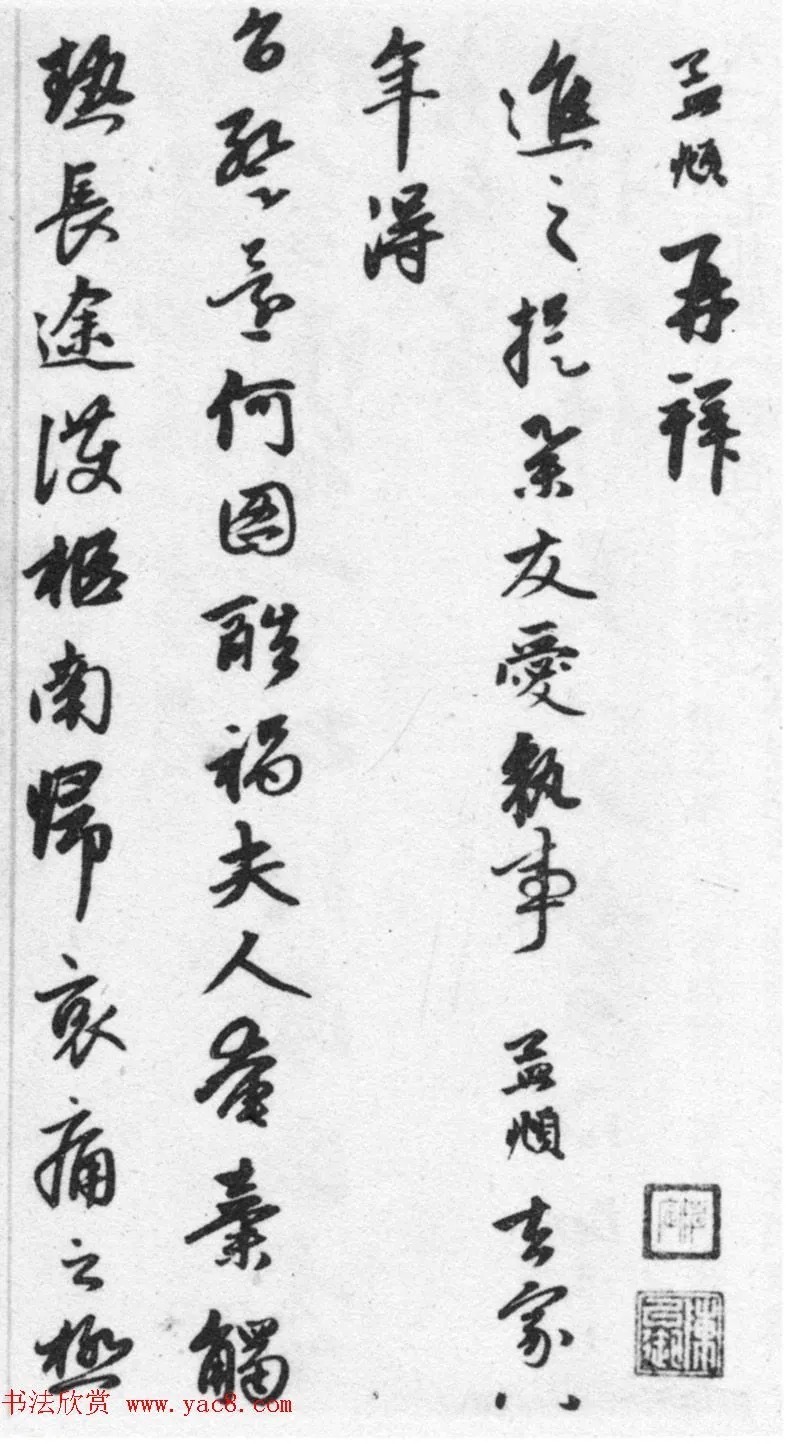 孟頫再拜
進之提舉友愛執事 孟頫去家八
年得
旨暫還何圖酷禍夫人奄棄觸
熱長途護柩南歸哀痛之極
书法欣赏 www.yac8.com